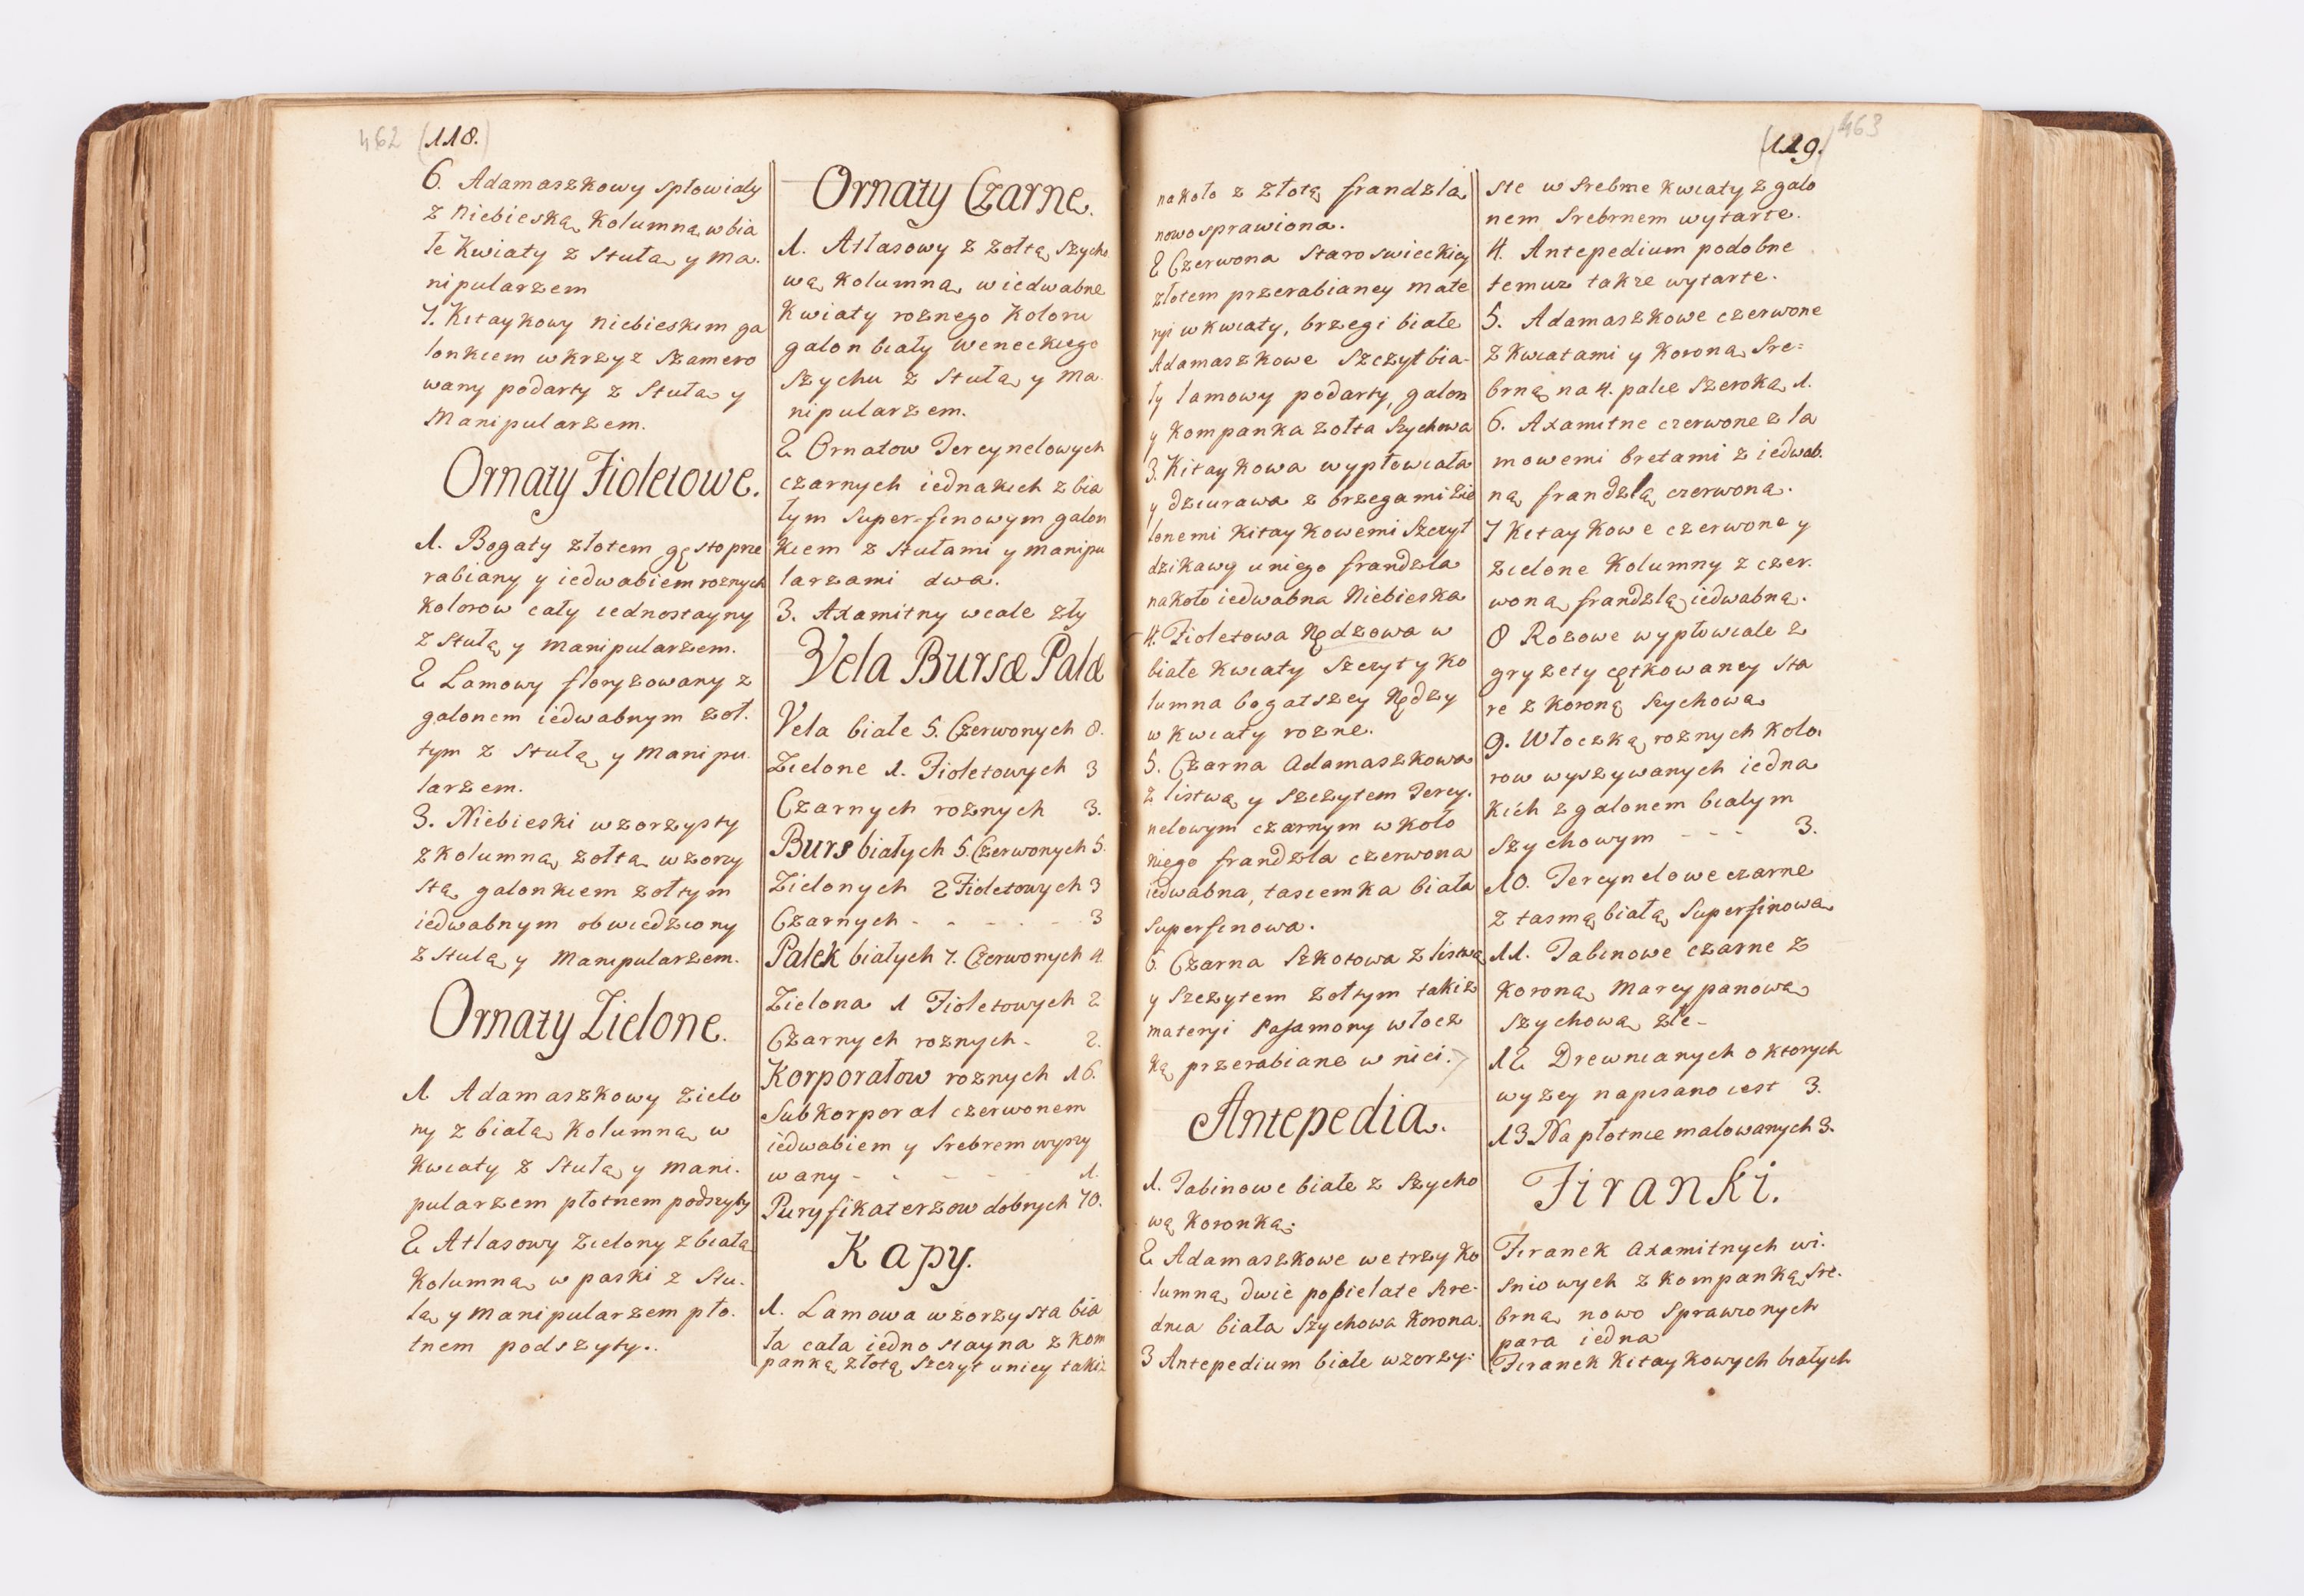 462 (118.)
6. Adamaszkowy spłowiały
z Niebieską Kolumną w bia
łe Kwiaty z Stułą y Ma.
nipularzem
7. Kitaykowy niebieskim ga
lonkiem w krzyz szamero
wany podarty z Stułą y
Manipularzem.
Ornaty Fioletowe.
1. Bogaty złotem gęsto prze
rabiany y iedwabiem roznych
Kolorow cały iednostayny
z Stułą y Manipularzem.
2 Lamowy floryzowany z
galonem iedwabnym żoł.
tym z Stułą y Manipu.
larzem.
3. Niebieski wzorzysty
z kolumną zołtą wzorzy
stą galonkiem zołtym
iedwabnym obwiedziony
z Stulą y Manipularzem.
Ornaty Zielone.
1. Adamaszkowy zielo
ny z białą Kolumną w
Kwiaty z Stułą y Mani.
pularzem płotnem podszyty
2 Atlasowy zielony z białą
Kolumną w paski z Stu.
łą y Manipularzem pło.
tnem podszyty.
Ornaty Czarne.
1. Atłasowy z zołtą szycho
wą Kolumną w iedwabne
Kwiaty roznego Koloru
galon biały weneckiego
szychu z Stułą y Ma.
nipularzem.
2 Ornatow Tercynelowych
czarnych iednakich z bia
łym Super-finowym galon
kiem z Stułami y manipu
larzami dwa.
3. Axamitny wcale zły
Vela Bursæ Palæ
Vela białe 5. Czerwonych 8.
Zielone 1. Fioletowych 3
Czarnych roznych 3.
Burs białych 5. Czerwonych 5.
Zielonych 2 Fioletowych 3
Czarnych - - - - - - 3
Palek białych 7. Czerwonych 4
Zielona 1 Fioletowych 2
Czarnych roznych - 2.
Korporałow roznych 16.
Subkorporal czerwonem
iedwabiem y Srebrem wyszy
wany - - - - - 1.
Puryfikaterzow dobrych 70.
Kapy.
1. Lamowa wzorzysta bia
ła cała iednostayna z kom
panką złotą szczyt uniey takiz
(119.) 463
nakoło z złotą frandzlą
nowo sprawiona.
2 Czerwona staroswieckiey
złotem przerabianey mate
ryi w kwiaty, brzegi białe
Adamaszkowe Szczyt bia-
ły lamowy podarty, galon
y Kompanka zołta Szychowa
3. Kitaykowa wypłowiała
y dziurawa z brzegami zie
lonemi Kitaykowemi Szczyt
dzikawy uniego frandzla
nakoło iedwabna Niebieska
4. Fioletowa Nędzowa w
białe kwiaty szczyt y Ko
lumna bogatszey Nędzy
w kwiaty rozne.
5. Czarna Adamaszkowa
z listwą y szczytem Tercy.
nelowym czarnym w koło
niego frandzla czerwona
iedwabna, tasiemka biała
Superfinowa.
6. Czarna Szkotowa z listwą
y szczytem zołtym takiz
materyi Pasamony włocz
ką przerabiane w nici.
Antepedia.
1. Tabinowe białe z szycho
wą koronką.
2 Adamaszkowe we trzy ko
lumną dwie popielate sre-
dnia biała Szychowa Korona.
3 Antepedium białe wzorzy:
ste w srebrne kwiaty z galo
nem Srebrnem wytarte.
4. Antepedium podobne
temuz takze wytarte.
5. Adamaszkowe czerwone
z kwiatami y Koroną Sre=
brną na 4. palce szeroką 1.
6. Axamitne czerwone z la
mowemi bretami z iedwab.
ną frandzlą czerwoną.
7 Kitaykowe czerwone y
zielone Kolumny z czer.
woną frandzlą iedwabną.
8 Rozowe wypłowiałe z
gryzety cętkowaney sta
re z koroną Szychową
9. Włoczką roznych kolo.
row wyszywanych iedna
kich z galonem białym
szychowym - - - 3.
10. Tercynelowe czarne
z tasmą białą Superfinową
11. Tabinowe czarne z
Koroną Marcypanową
szychową złe-
12 Drewnianych o ktorych
wyzey napisano iest 3.
13 Na płotnie malowanych 3.
Firanki.
Firanek Axamitnych wi.
sniowych z kompanką Sre.
brną nowo sprawionych
para iedna
Firanek Kitaykowych białych